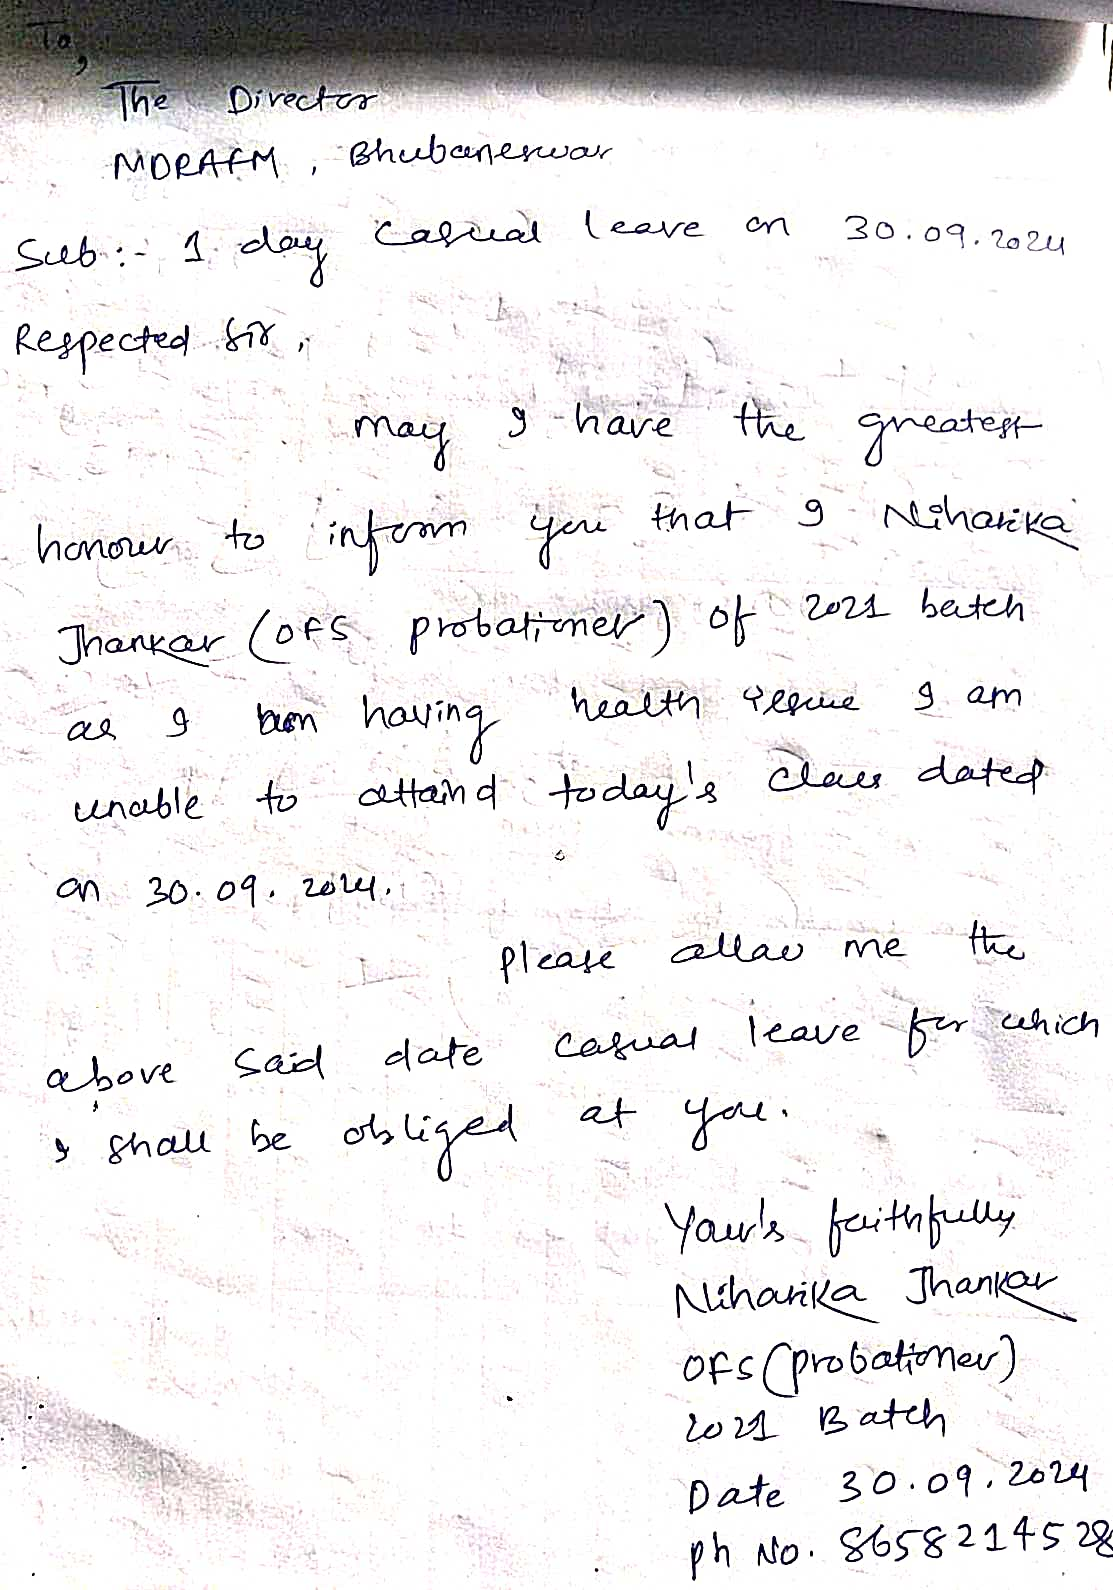 To,
The Director
MDRAFM, Bhubaneswar
Sub:- 1 day Casual leave on 30.09.2024
Respected Sir,
May I have the greatest
honour to inform you that I Niharika
Jhankar (OFS probationer) of 2021 batch
as I am having health issue I am
unable to attaind today's class dated
on 30.09.2024.
Please allow me the
above said date casual leave for which
I shall be obliged at you.
Your's faithfully
Niharika Jhankar
OFS (probationer)
2021 Batch
Date 30.09.2024
ph No. 8658214528